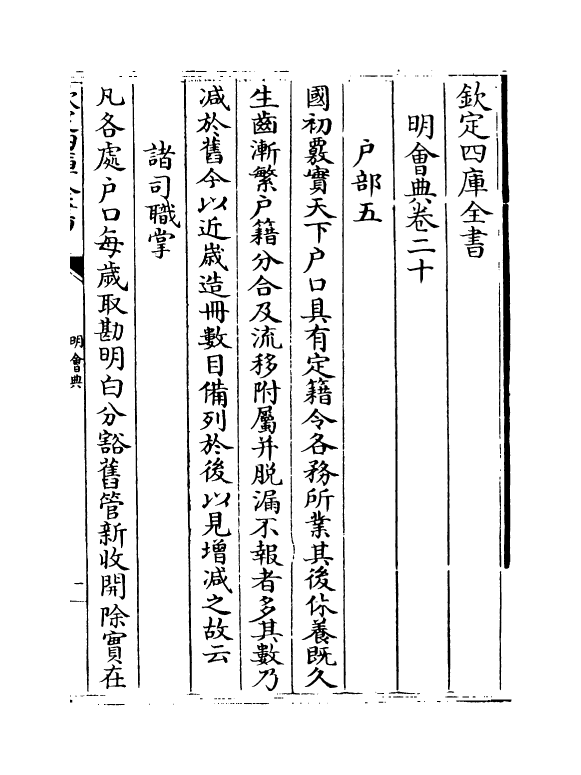 欽定四庫全書
明會典卷二十
户部五
國初覈實天下户口具有定籍令各務所業其後休養既久
生齒漸繁户籍分合及流移附屬并脱漏不報者多其數乃
減於舊今以近歲造冊數目備列於後以見增減之故云
諸司職掌
凡各處户口每歲取勘明白分豁舊管新收開除實在
明會典